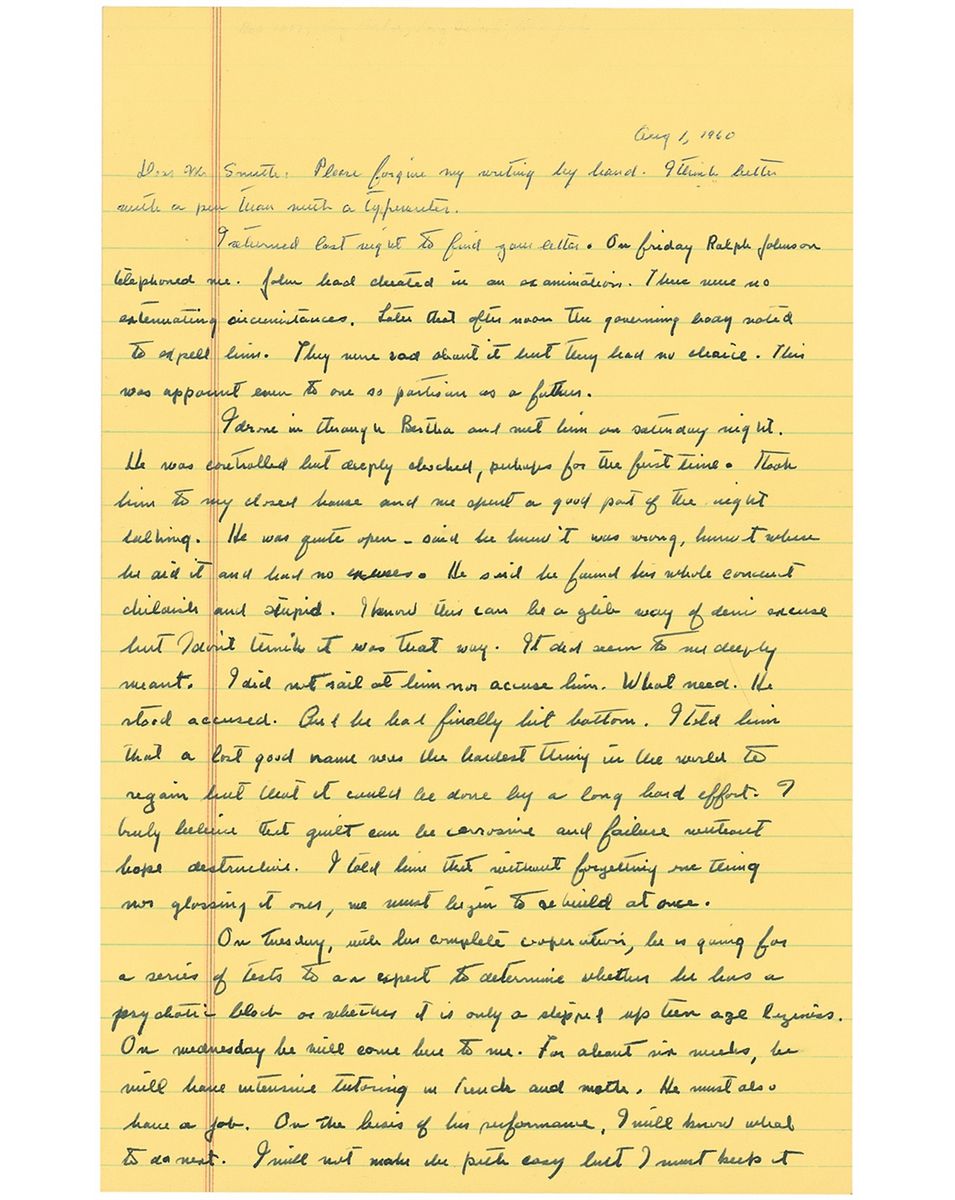 Aug 1, 1960
Dear Mr Smith: Please forgive my writing by hand. I think better
with a pen than with a typewriter.
I returned last night to find your letter. On friday Ralph Johnson
telephoned me. John had cheated in an examination. There were no
extenuating circumstances. Later that after noon the governing body voted
to expell him. They were sad about it but they had no choice. This
was apparent even to one so partisan as a father.
I drove in through Bertha and met him on saturday night.
He was controlled but deeply shocked, perhaps for the first time. I took
him to my closed house and we spent a good part of the night
talking. He was quite open - said he knew it was wrong, knew it when
he did it and had no excuses. He said he found his whole conduct
childish and stupid. I know this can be a glib way of excuse
but I don't think it was that way. It did seem to me deeply
meant. I did not rail at him nor accuse him. What need. He
stood accused. And he had finally hit bottom. I told him
that a lost good name was the hardest thing in the world to
regain but that it could be done by a long hard effort. I
truly believe that guilt can be corrosive and failure without
hope destructive. I told him that without forgetting one thing
nor glossing it over, we must begin to rebuild at once.
On Tuesday, with his complete cooperation, he is going for
a series of tests to an expert to determine whether he has a
psychotic block or whether it is only a stepped up teen age laziness.
On wednesday he will come here to me. For about six weeks, he
will have intensive tutoring in French and math. He must also
have a job. On the basis of his performance, I will know what
to do next. I will not make the path easy but I must keep it